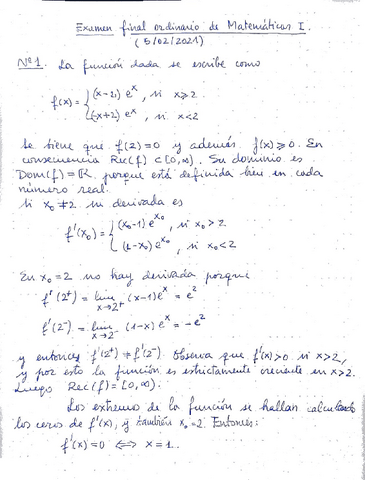 Examen final ordinario de Matemáticas I.
(5/02/2021)
Nº1. La función dada se escribe como
f(x) = { (x-2) e^x, si x≥2
(-x+2) e^x, si x<2
Se tiene que f(2)=0 y además f(x)≥0. En
consecuencia Rec(f) ⊂ [0,∞). Su dominio es
Dom(f)=ℝ porque está definida bien en cada
número real.
Si x₀≠2 su derivada es
f'(x₀) = { (x₀-1) e^x₀, si x₀>2
(1-x₀) e^x₀, si x₀<2
En x₀=2 no hay derivada porque
f'(2⁺) = lim x→2⁺ (x-1)e^x = e²
f'(2⁻) = lim x→2⁻ (1-x) e^x = -e²
y entonces f'(2⁺) ≠ f'(2⁻). Observa que f'(x)>0 si x>2,
y por esto la función es estrictamente creciente en x>2.
Luego Rec(f)=[0,∞).
Los extremos de la función se hallan calculando
los ceros de f'(x), y también x₀=2. Entonces:
f'(x)=0 ⟺ x=1.